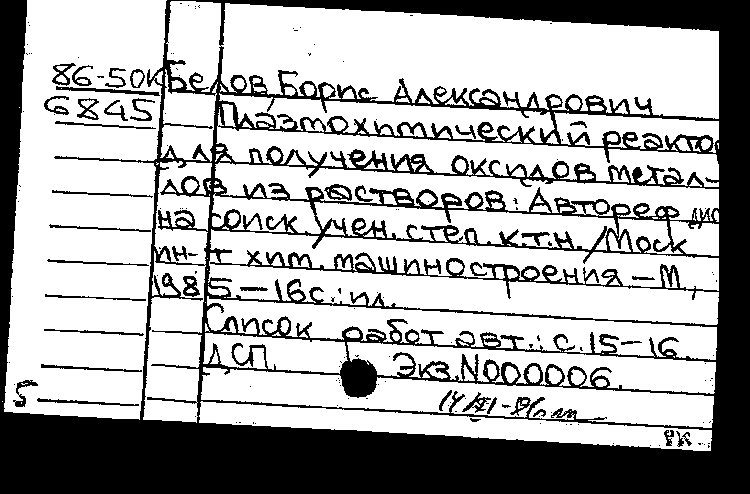 86-50к Белов, Борис Александрович
6845 Плазмохимический реактор
для получения оксидов метал-
лов из растворов: Автореф дис
на соиск. учен. степ. к.т.н. /Моск
ин-т хим. машиностроения.-М.,
1985.-16с.:ил.
Список работ авт.: с.15-16.
ДСП. Экз.N000006.
5
РК